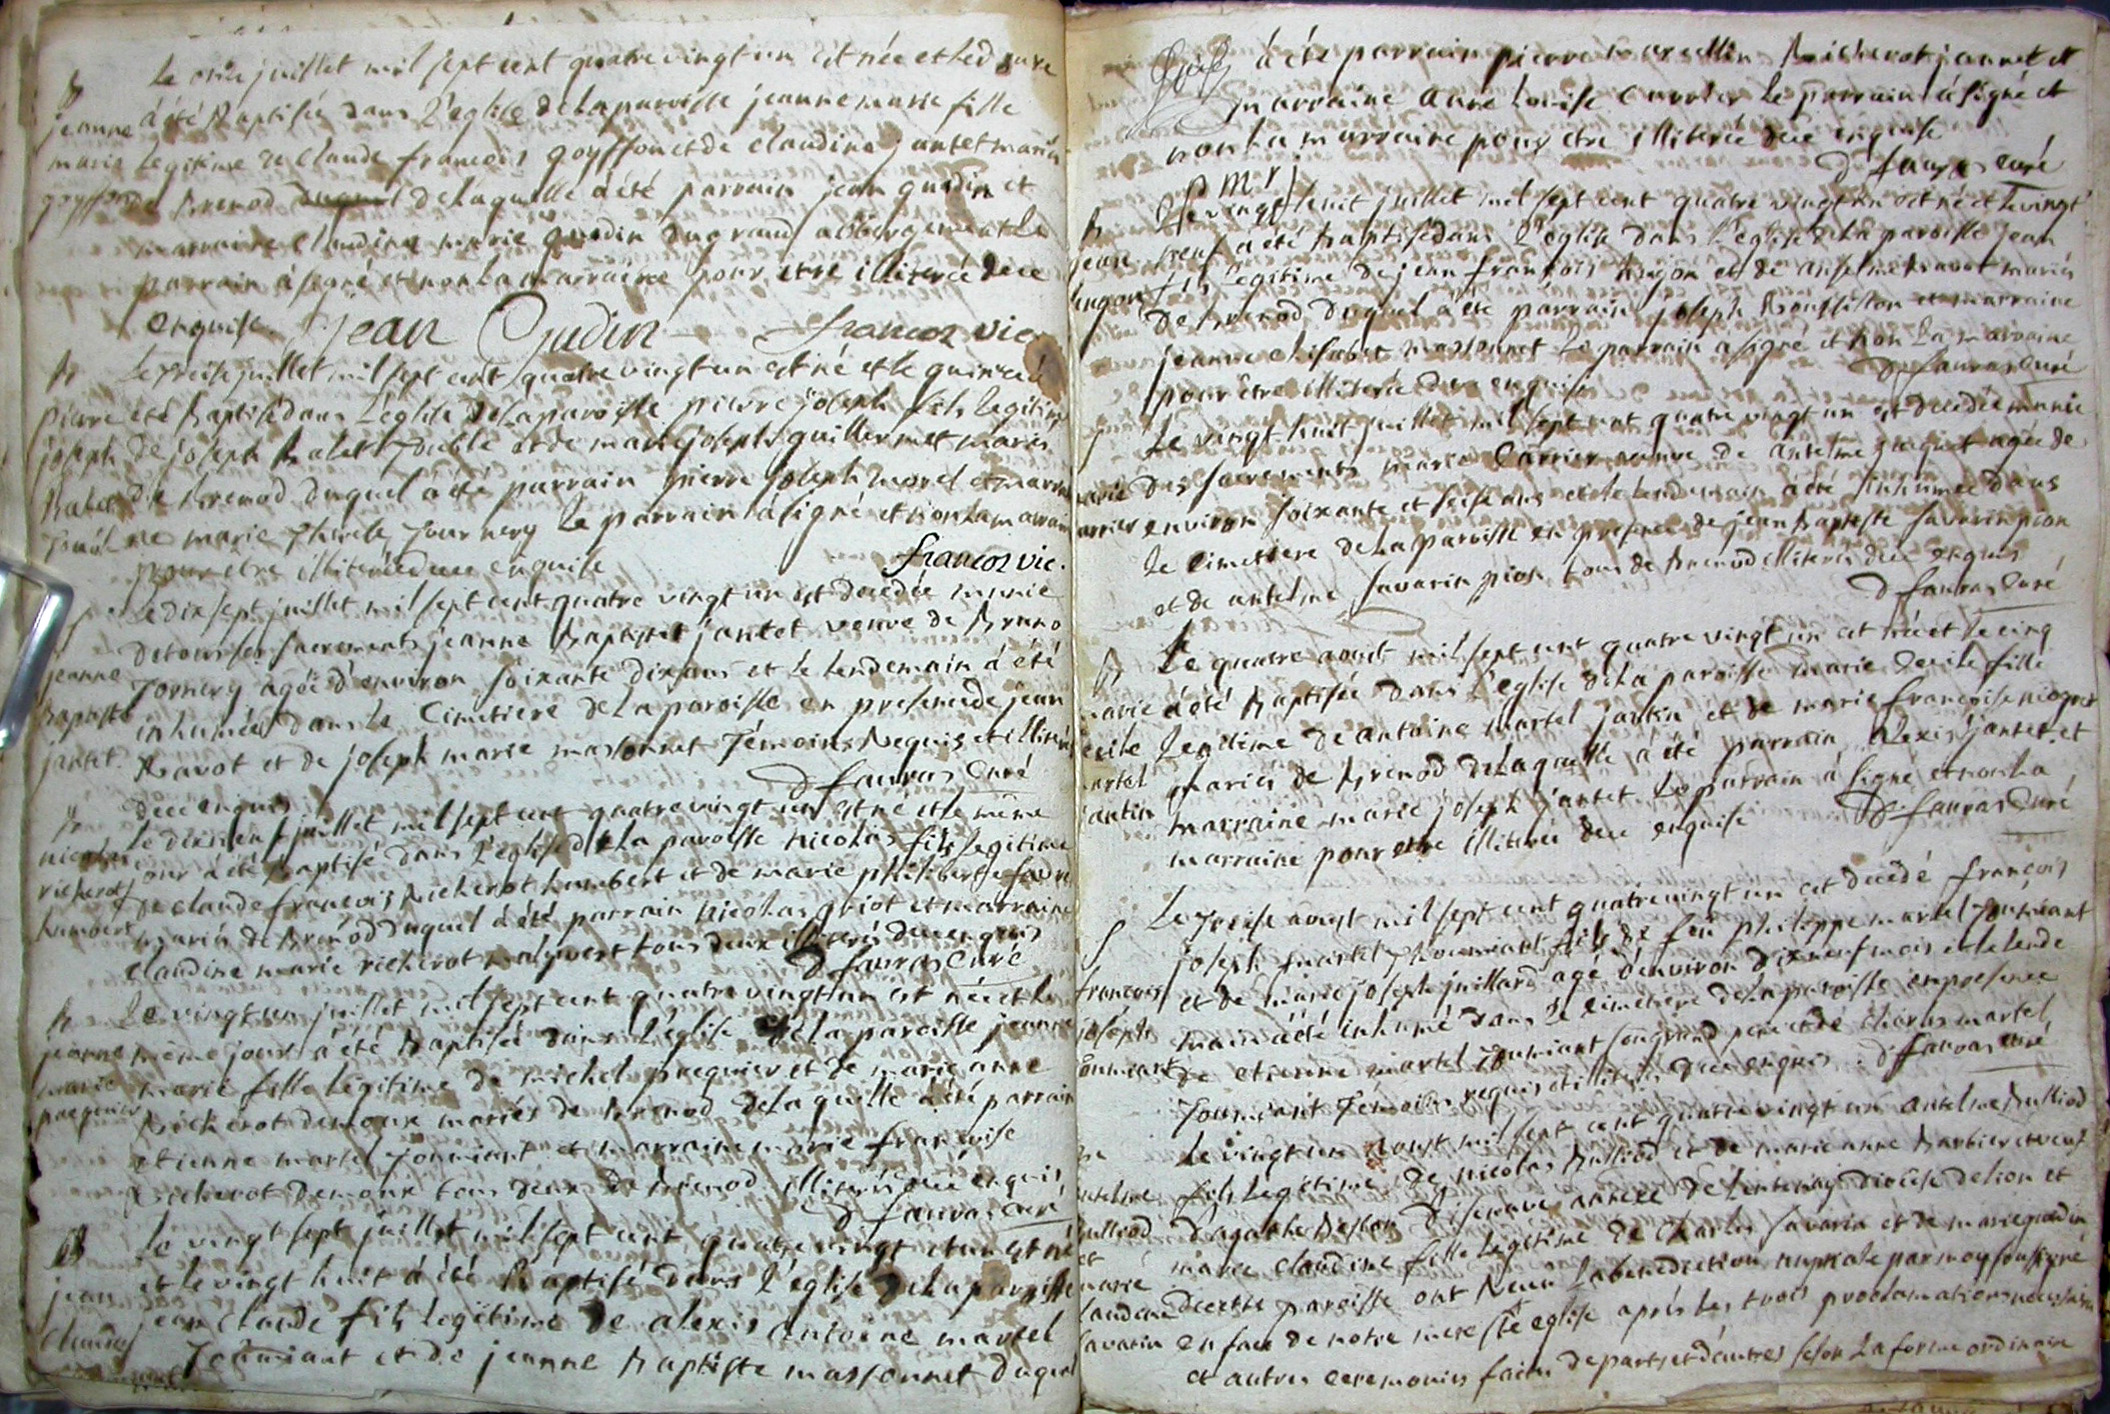 le onze juillet mil sept cent quatre vingt un est née et le douze
B jeanne marie goyffon
à été Baptisée dans l'église de la paroisse jeanne marie fille
legitime de claude francois goyffon et de claudine jantet mariés
de Brenod de laquelle à été parrain jean gudin et
marraine claudine marie gudin du grand abbergement le
parrain à signé et non la marraine pour etre illiterée de ce
enquise. jean Gudin francoz vic.
B pierre joseph Balet
le treise juillet mil sept cent quatre vingt un est né et le quinze à
été Baptisé dans l'église de la paroisse pierre joseph fils legitime
de joseph Balet et de marie joseph guillermet mariés
de Brenod duquel à été parrain pierre joseph morel et marrai
ne marie therese Tournery le parrain à signé et non la marraine
pour etre illiterée de ce enquise francoz vic.
S jeanne Baptiste jantet.
le dix sept juillet mil sept cent quatre vingt un est decedée munie
de tous les sacrements jeanne Baptiste jantet veuve de Bruno
Tornery agée d'environ soixante dix ans et le lendemain à été
inhumée dans le Cimetiere de la paroisse en presence de jean
Ravot et de joseph marie massonnet Témoins Requis et illiterés
de ce enquis D fauvas Curé
B nicolas richerot humbert
le dixneuf juillet mil sept cent quatre vingt un est né et le même
jour à été Baptisé dans l'église de la paroisse nicolas fils legitime
de claude francois Richerot humbert et de marie philiberte favre
mariés de Brenod duquel à été parrain nicolas griot et marraine
claudine marie richerot malvert tous deux illiterés de ce enquis
D fauvas Curé
B jeanne marie paequier
le vingt un juillet mil sept cent quatre vingt un est née et le
même jour à été Baptisée dans l'église de la paroisse jeanne
marie fille legitime de michel paequier et de marie anne
Richerot demoux mariés de Brenod de laquelle à été parrain
etienne martel Toumiant et marraine marie francoise
Richerot demoux tous deux de Brenod illiterés de ce enquis
D fauvas curé
B jean claude
le vingt sept juillet mil sept cent quatre vingt et un est né
et le vingt huit à été Baptisé dans l'église de la paroisse
jean claude fils legitime de alexis antoine martel
Toumiant et de jeanne Baptiste massonnet duquel
à été parrain pierre marcellin Richerot jeannet et
marraine anne Louise Carrier le parrain à signé et
non la marraine pour etre illiterée de ce enquise
D fauvas curé
p m r j
B jean
le vingt huit juillet mil sept cent quatre vingt un est né et le vingt
neuf à été Baptisé dans l'église dans l'église de la paroisse jean
fils legitime de jean francois et de anselme Ravot mariés
de Brenod duquel à été parrain joseph Roussillon et marraine
jeanne elisabet massonnet le parrain à signé et non la marraine
pour être illiterée de ce enquise D fauvas Curé
S marie Carrier
le vingt huit juillet mil sept cent quatre vingt un est decedée munie
des sacrements marie Carrier veuve de antelme agée de
environ soixante et seise ans et le lendemain à été inhumée dans
le Cimetiere de la paroisse en presence de jean Baptiste savarin pion
et de antelme savarin pion tous de Brenod illiterés de ce enquis
D fauvas Curé
B marie cecile martel jantin
le quatre aoust mil sept cent quatre vingt un est née et le cinq
à été Baptisée dans l'église de la paroisse marie Cecile fille
legitime de antoine martel jantin et de marie francoise
mariés de Brenod de laquelle à été parrain alexis jantet et
marraine marie joseph jantet le parrain à signé et non la
marraine pour etre illiterée de ce enquise D fauvas Curé
S francois joseph Toumiant
le treise aoust mil sept cent quatre vingt un est decedé francois
joseph martel Thoumiant fils de feu philippe martel Toumiant
et de marie joseph juillard agé d'environ dixneuf mois et le lende
main à été inhumé dans le cimetiere de la paroisse en presence
de etienne martel Toumiant son grand pere et de charles martel
Toumiant Témoins requis et illiterés de ce enquis D fauvas curé
M antelme Bulliod et marie claudine savarin
le vingt un aoust mil sept cent quatre vingt un antelme Bulliod
fils legitime de nicolas Bulliod et de marie anne Barbier et veuf
d'agathe Besson d'isenave annexe de lentenay diocese de lion et
marie claudine fille legitime de Charles savarin et de marie gudin
de cette paroisse ont Recu la benediction nuptiale par moy soussigné
en face de notre mere ste eglise après les trois proclamations necessaires
et autres ceremonies faites de part et d'autres selon la forme ordinaire